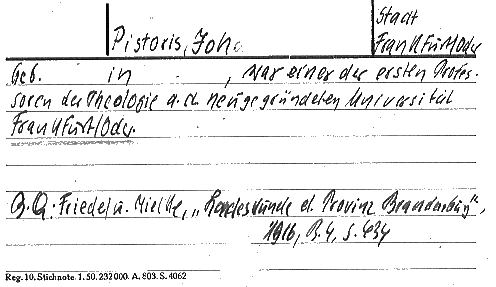 Stadt
Pistoris, Joh. Frankfurt/Oder
Geb. in , war einer der ersten Profes-
soren der Theologie a. d. neugegründeten Universität
Frankfurt/Oder.
B.Q.: Friedel u. Mielke, „Landeskunde d. Provinz Brandenburg",
1916, B. 4, S. 434
Reg. 10. Stichnote. 1. 50. 232000. A. 803. S. 4062